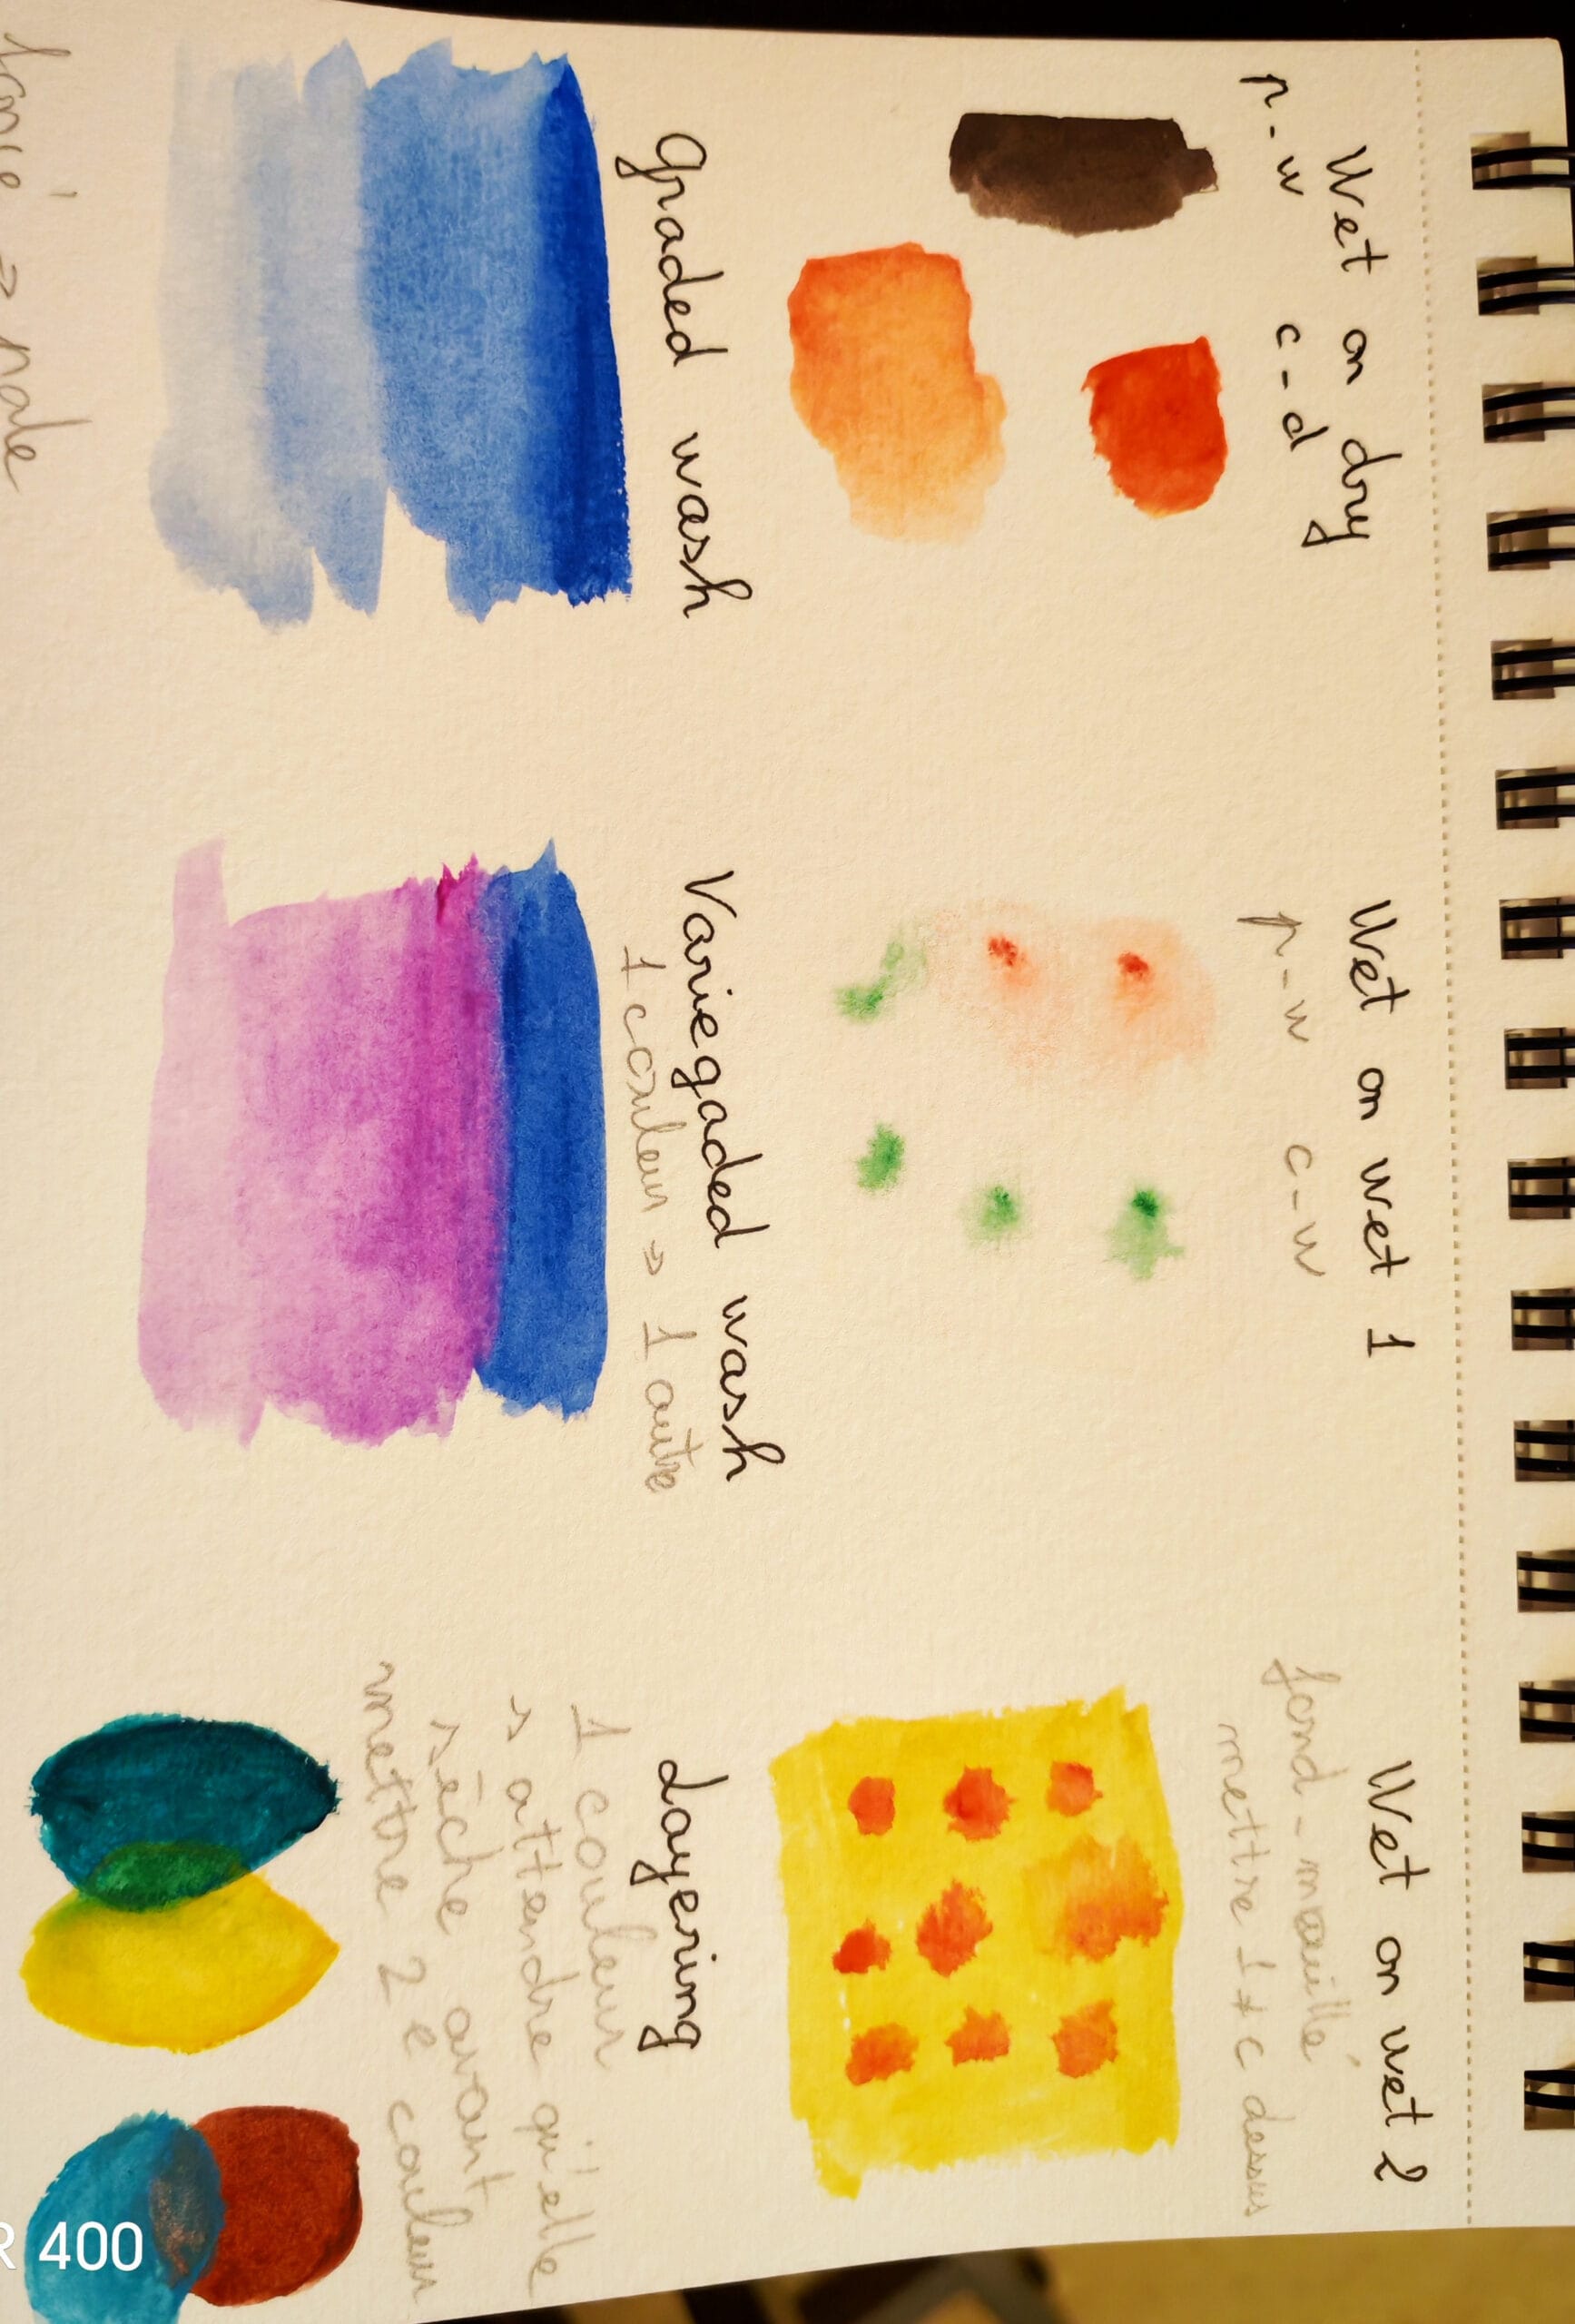 Wet on dry
p-w c-d
Wet on wet 1
p-w c-w
Wet on wet 2
fond-mouillé
mettre 1+c dessus
Graded wash
Variegaded wash
1 couleur → 1 autre
Layering
1 couleur
s attendre qu'elle
sèche avant
mettre 2e couleur
foncé → pale
R 400